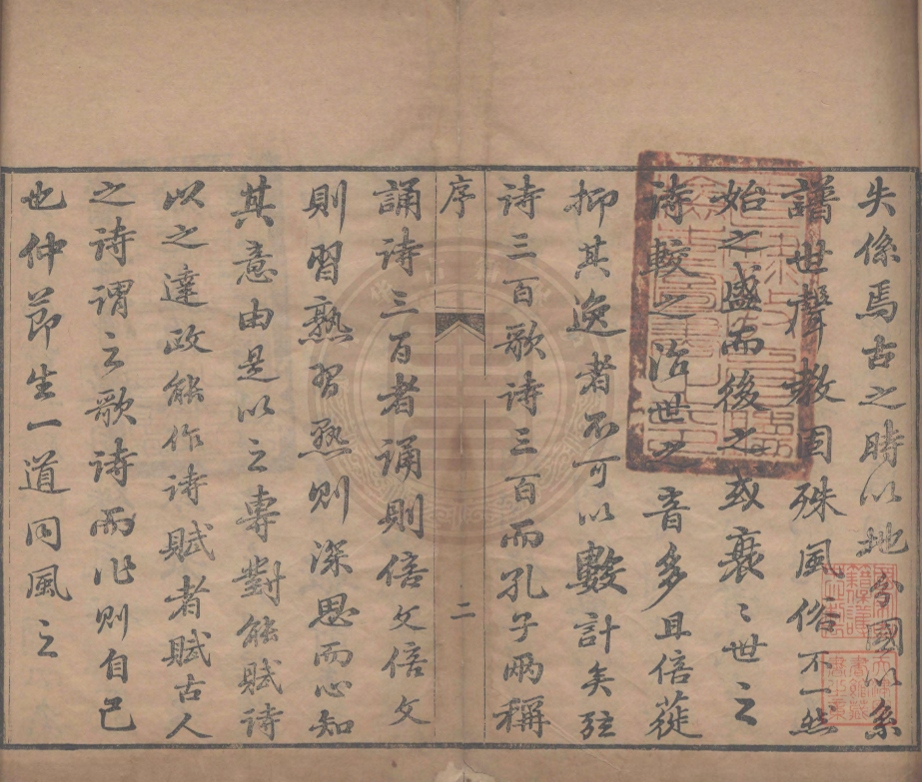 失係焉古之時以地分國以系
譜世聲教固殊風俗不一然
始之盛而後之或衰衰世之
诗較之治世之音多且倍蓰
抑其逸者不可以數計矣弦
诗三百歌诗三百而孔子兩稱
序
二
誦诗三百者誦則倍文倍文
則習熟習熟則深思而心知
其意由是以之專對能賦诗
以之達政能作诗賦者賦古人
之诗谓之歌诗而作則自己
也仲節生一道同風之